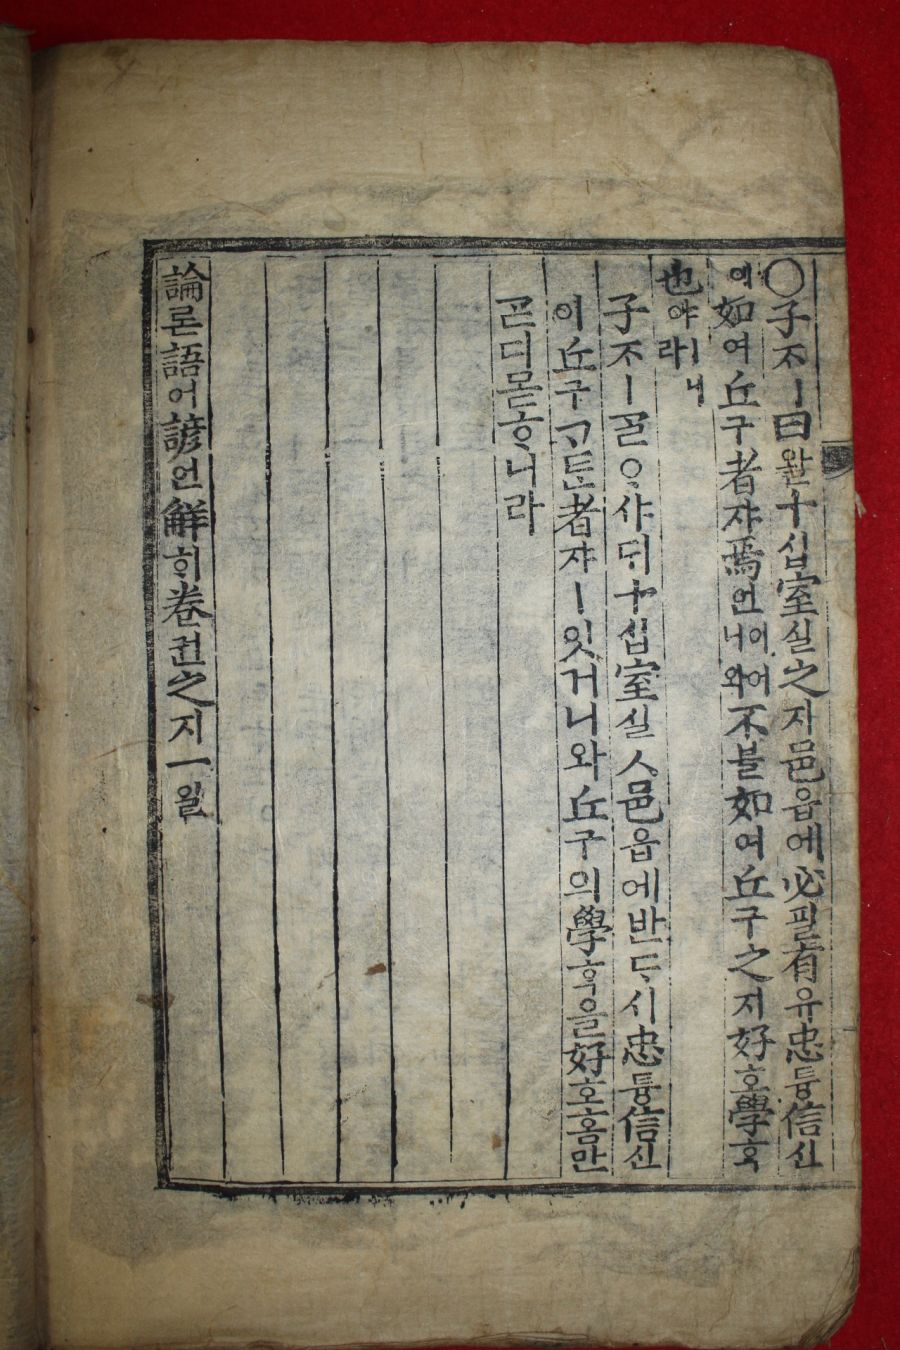 ○子ᄌᆞㅣ曰왈十십室실之지邑읍에必필有유忠튱信신
예如여丘구者쟈焉언이어니와不블如여丘구之지好호學ᄒᆞᆨ
也야ㅣ니라
子ᄌᆞㅣ골ᄋᆞ샤ᄃᆡ十십室실ㅅ邑읍에반ᄃᆞ시忠튱信신
이丘구ᄀᆞᄐᆞᆫ者쟈ㅣ잇거니와丘구의學ᄒᆞᆨ을好호홈만
ᄀᆞᆮ디몯ᄒᆞ니라
論론語어諺언解ᄒᆡ卷권之지一일